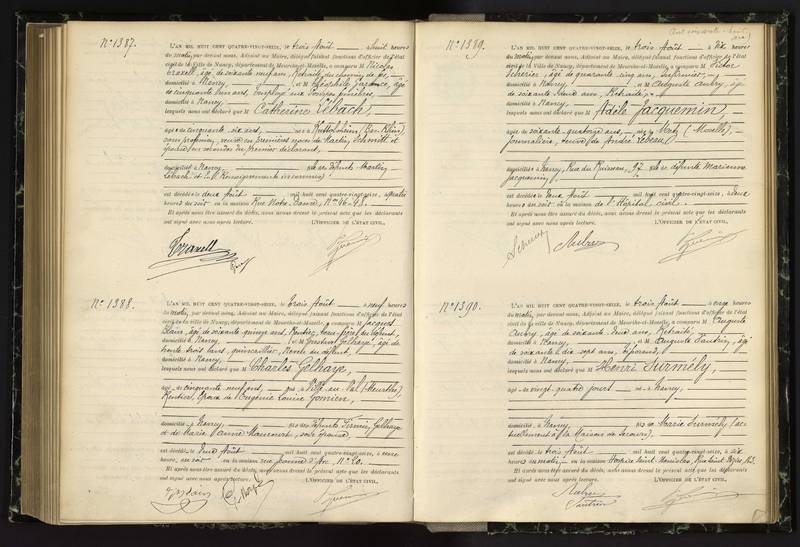 N° 1387.
L'AN MIL HUIT CENT QUATRE-VINGT-SEIZE, le trois Août, à huit heures
du matin, par devant nous, Adjoint au Maire, délégué faisant fonctions d'officier de l'état
civil de la Ville de Nancy, département de Meurthe-et-Moselle, a comparu M Nicolas
Traxell, âgé de soixante neuf ans, Retraité du chemin de fer,
domicilié à Nancy, et M Théophile âgé
de cinquante ans, Employé aux Pompes funèbres,
domicilié à Nancy,
lesquels nous ont déclaré que M Catherine Lebach,
âgée de cinquante six ans, née à Kuttolsheim (Bas-Rhin)
sans profession, veuve en premières noces de Martin Schmitt et
épouse en secondes du premier déclarant,
domiciliée à Nancy, fille de défunts Martin
Lebach et (Renseignements inconnus)
est décédée le deux Août mil huit cent quatre-vingt-seize, à quatre
heures du soir en la maison Rue Notre-Dame, Nos 46-48.
Et après nous être assuré du décès, nous avons dressé le présent acte que les déclarants
ont signé avec nous après lecture. L'OFFICIER DE L'ÉTAT CIVIL,
Traxell
N° 1388.
L'AN MIL HUIT CENT QUATRE-VINGT-SEIZE, le trois Août, à neuf heures
du matin, par devant nous, Adjoint au Maire, délégué faisant fonctions d'officier de l'état
civil de la ville de Nancy, département de Meurthe-et-Moselle, a comparu M Jacques
âgé de soixante quinze ans, Rentier, beau-frère du défunt,
domicilié à Nancy, et M Gelhaye, âgé de
trente trois ans, quincaillier, Neveu du défunt,
domicilié à Nancy,
lesquels nous ont déclaré que M Charles Gelhaye,
âgé de cinquante neuf ans, né à Ville-au-Val (Meurthe),
Rentier, époux de Eugénie Louise
domicilié à Nancy, fils de défunts Firmin Gelhaye
et de Marie Anne son épouse,
est décédé le deux Août mil huit cent quatre-vingt-seize, à onze
heures du soir en la maison rue Jeanne d'Arc, N° 20.
Et après nous être assuré du décès, nous avons dressé le présent acte que les déclarants
ont signé avec nous après lecture. L'OFFICIER DE L'ÉTAT CIVIL,
N° 1389.
L'AN MIL HUIT CENT QUATRE-VINGT-SEIZE, le trois Août, à dix heures
du matin, par devant nous, Adjoint au Maire, délégué faisant fonctions d'officier de l'état
civil de la Ville de Nancy, département de Meurthe-et-Moselle, a comparu M Victor
Scherier, âgé de quarante cinq ans, Infirmier,
domicilié à Nancy, et M Auguste Aubry, âgé
de soixante deux ans, Retraité,
domicilié à Nancy,
lesquels nous ont déclaré que M Adèle Jacquemin,
âgée de soixante-quatorze ans, née à Metz (Moselle),
journalière, veuve de André Lebeau,
domiciliée à Nancy, Rue du Ruisseau, 37 fille de défunte Marianne
Jacquemin,
est décédée le deux Août mil huit cent quatre-vingt-seize, à deux
heures du soir en la maison de l'Hôpital civil.
Et après nous être assuré du décès, nous avons dressé le présent acte que les déclarants
ont signé avec nous après lecture. L'OFFICIER DE L'ÉTAT CIVIL,
Aubry
N° 1390.
L'AN MIL HUIT CENT QUATRE-VINGT-SEIZE, le trois Août, à onze heures
du matin, par devant nous, Adjoint au Maire, délégué faisant fonctions d'officier de l'état
civil de la ville de Nancy, département de Meurthe-et-Moselle, a comparu M Auguste
Aubry, âgé de soixante deux ans, Retraité,
domicilié à Nancy, et M Auguste Sautrin, âgé
de soixante dix sept ans,
domicilié à Nancy,
lesquels nous ont déclaré que M Henri Surmely,
âgé de vingt-quatre jours né à Nancy,
domicilié à Nancy, fils de Marie Surmely (ac-
tuellement à la Maison de Secours),
est décédé le trois Août mil huit cent quatre-vingt-seize, à six
heures du matin, en la maison Hospice Saint-Stanislas, Rue Saint Dizier, 163.
Et après nous être assuré du décès, nous avons dressé le présent acte que les déclarants
ont signé avec nous après lecture. L'OFFICIER DE L'ÉTAT CIVIL,
Aubry
Sautrin